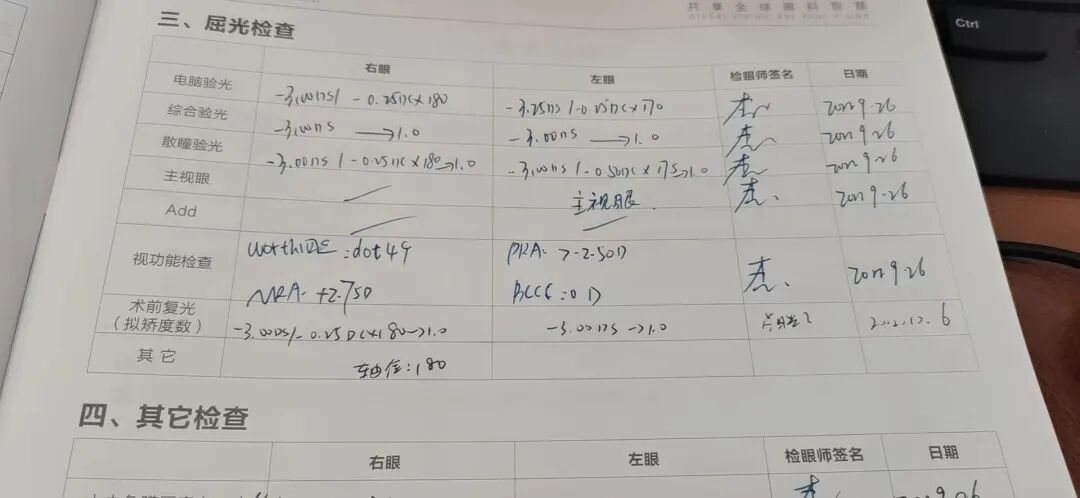 共享全球眼科智慧
Global Vision For Your Vision
Ctrl
三、屈光检查
右眼 左眼 检眼师签名 日期
电脑验光 -3.00DS/-0.25DC×180 -3.25DS/-0.25DC×170 2022.9.26
综合验光 -3.00DS →1.0 -3.00DS →1.0 2022.9.26
散瞳验光 -3.00DS/-0.25DC×180→1.0 -3.00DS/-0.50DC×175→1.0 2022.9.26
主视眼 主视眼 2022.9.26
Add
视功能检查 worth4 dot PRA: >-2.50D 2022.9.26
NRA: +2.75D BCC: 0D
术前复光
(拟矫度数) -3.00DS/-0.25DC×180→1.0 -3.00DS→1.0
其它 轴位:180
四、其它检查
右眼 左眼 检眼师签名 日期